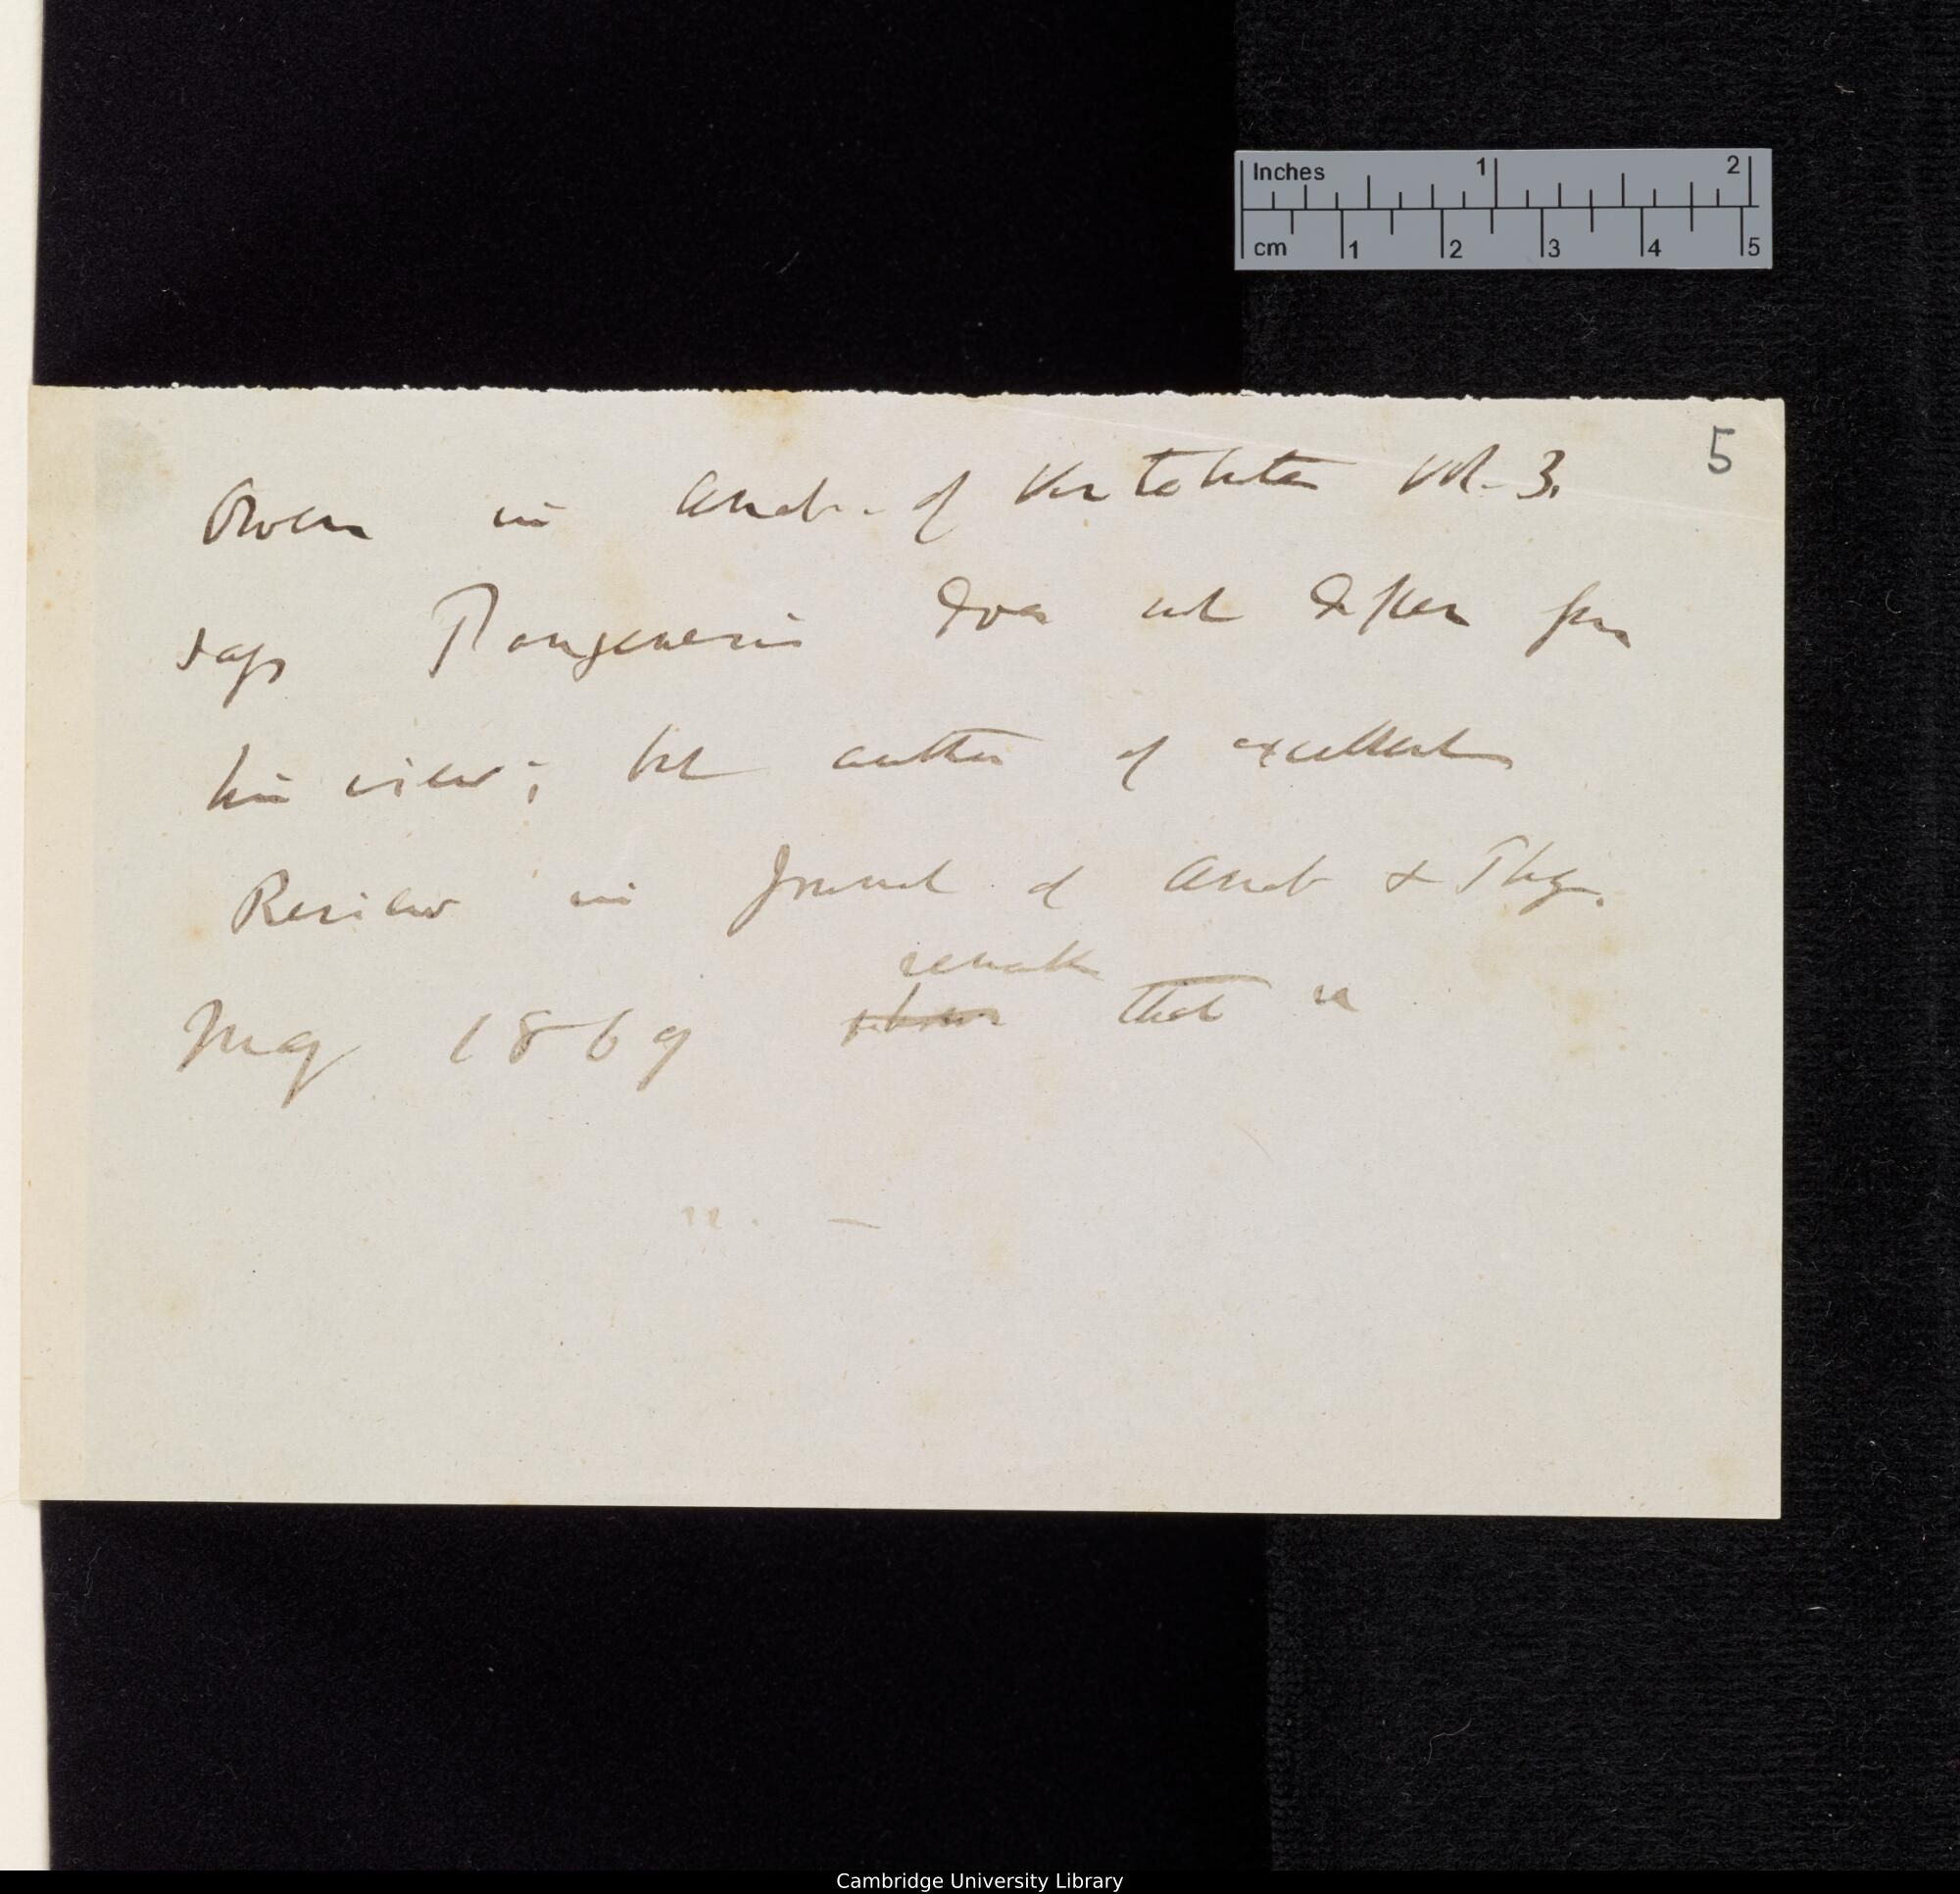 Inches 1 2
cm 1 2 3 4 5
5
Owen in Anat. of Vertebrates vol. 3.
says Pangenesis does not differ from
his view; but author of excellent
Review in Journal of Anat & Phy.
remarks
May 1869 shows that
Cambridge University Library